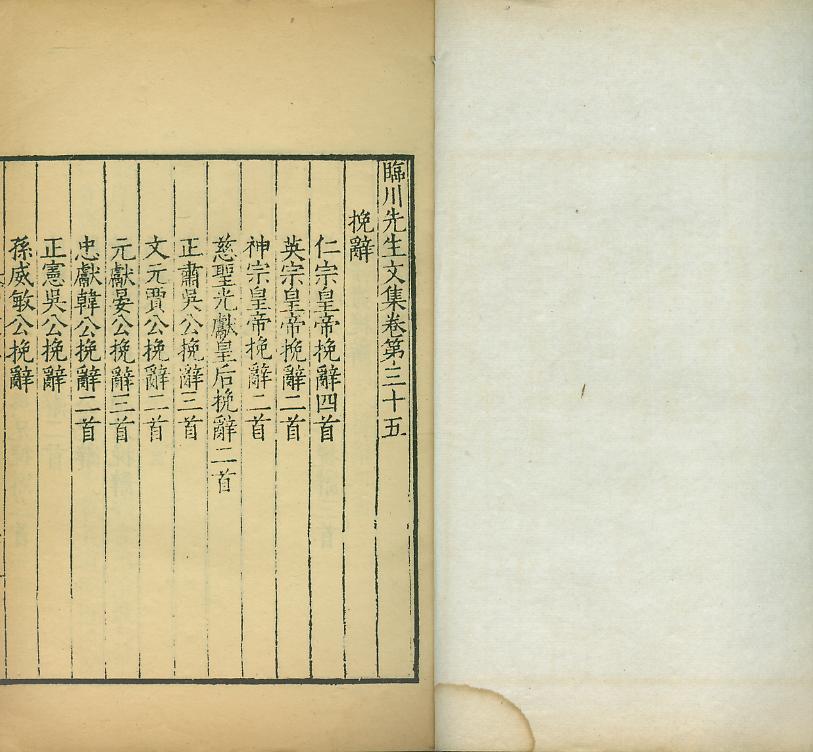 臨川先生文集卷第三十五
挽辭
仁宗皇帝挽辭四首
英宗皇帝挽辭二首
神宗皇帝挽辭二首
慈聖光獻皇后挽辭二首
正肅吳公挽辭三首
文元賈公挽辭二首
元獻晏公挽辭三首
忠獻韓公挽辭二首
正憲吳公挽辭
孫威敏公挽辭